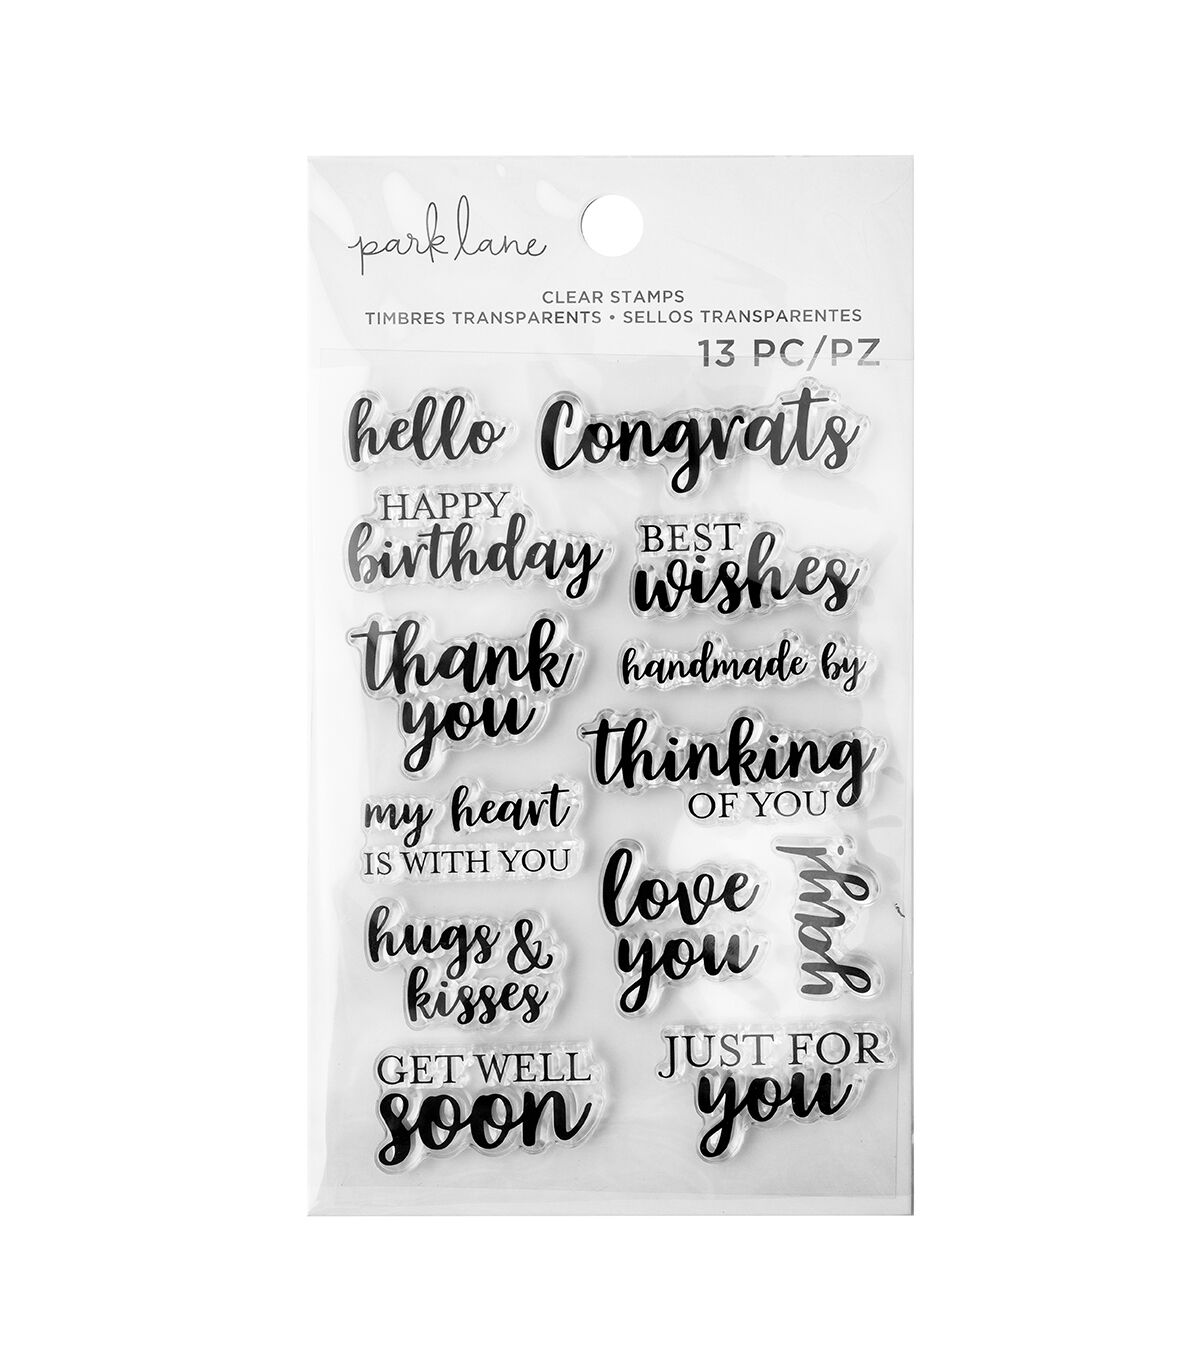 park lane
CLEAR STAMPS
TIMBRES TRANSPARENTS • SELLOS TRANSPARENTES
13 PC/PZ
hello
Congrats
HAPPY
birthday
BEST
wishes
thank
you
handmade by
thinking
OF YOU
my heart
IS WITH YOU
love
you
hugs &
kisses
GET WELL
soon
JUST FOR
you